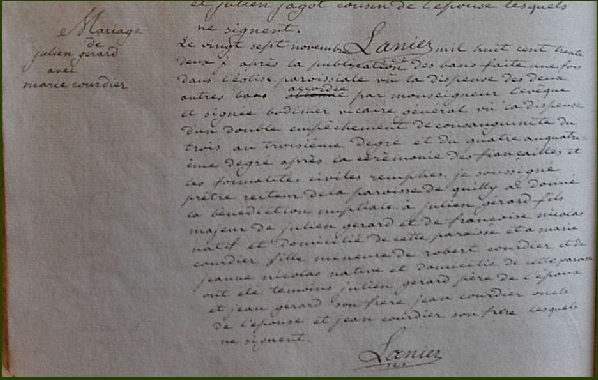 et julien jagot cousin de l'epouse lesquels
ne signent.
Lanier
Mariage
de
julien gerard
avec
marie courdier
Le vingt sept novembre mil huit cent trente
deux; après la publication des bans faite une fois
dans l'église paroissiale vu la dispense des deux
autres bans accordée par monseigneur l'evêque
et signée bodinier vicaire général vu la dispense
d'un double empêchement de consanguinité du
trois au troisième degré et du quatre au quatri-
ème degré après la cérémonie des fiançailles et
les formalités civiles remplies, je soussigné
prêtre recteur de la paroisse de quilly ai donné
la bénédiction nuptiale à julien gerard fils
majeur de julien gerard et de françoise nicolas
natif et domicilié de cette paroisse et a marie
courdier fille mineure de robert courdier et de
jeanne nicolas native et domicilié de cette paroisse
ont été temoins julien gerard père de l'epoux
et jean gerard son frere jean courdier oncle
de l'epouse et jean courdier son frere lesquels
ne signent.
Lanier